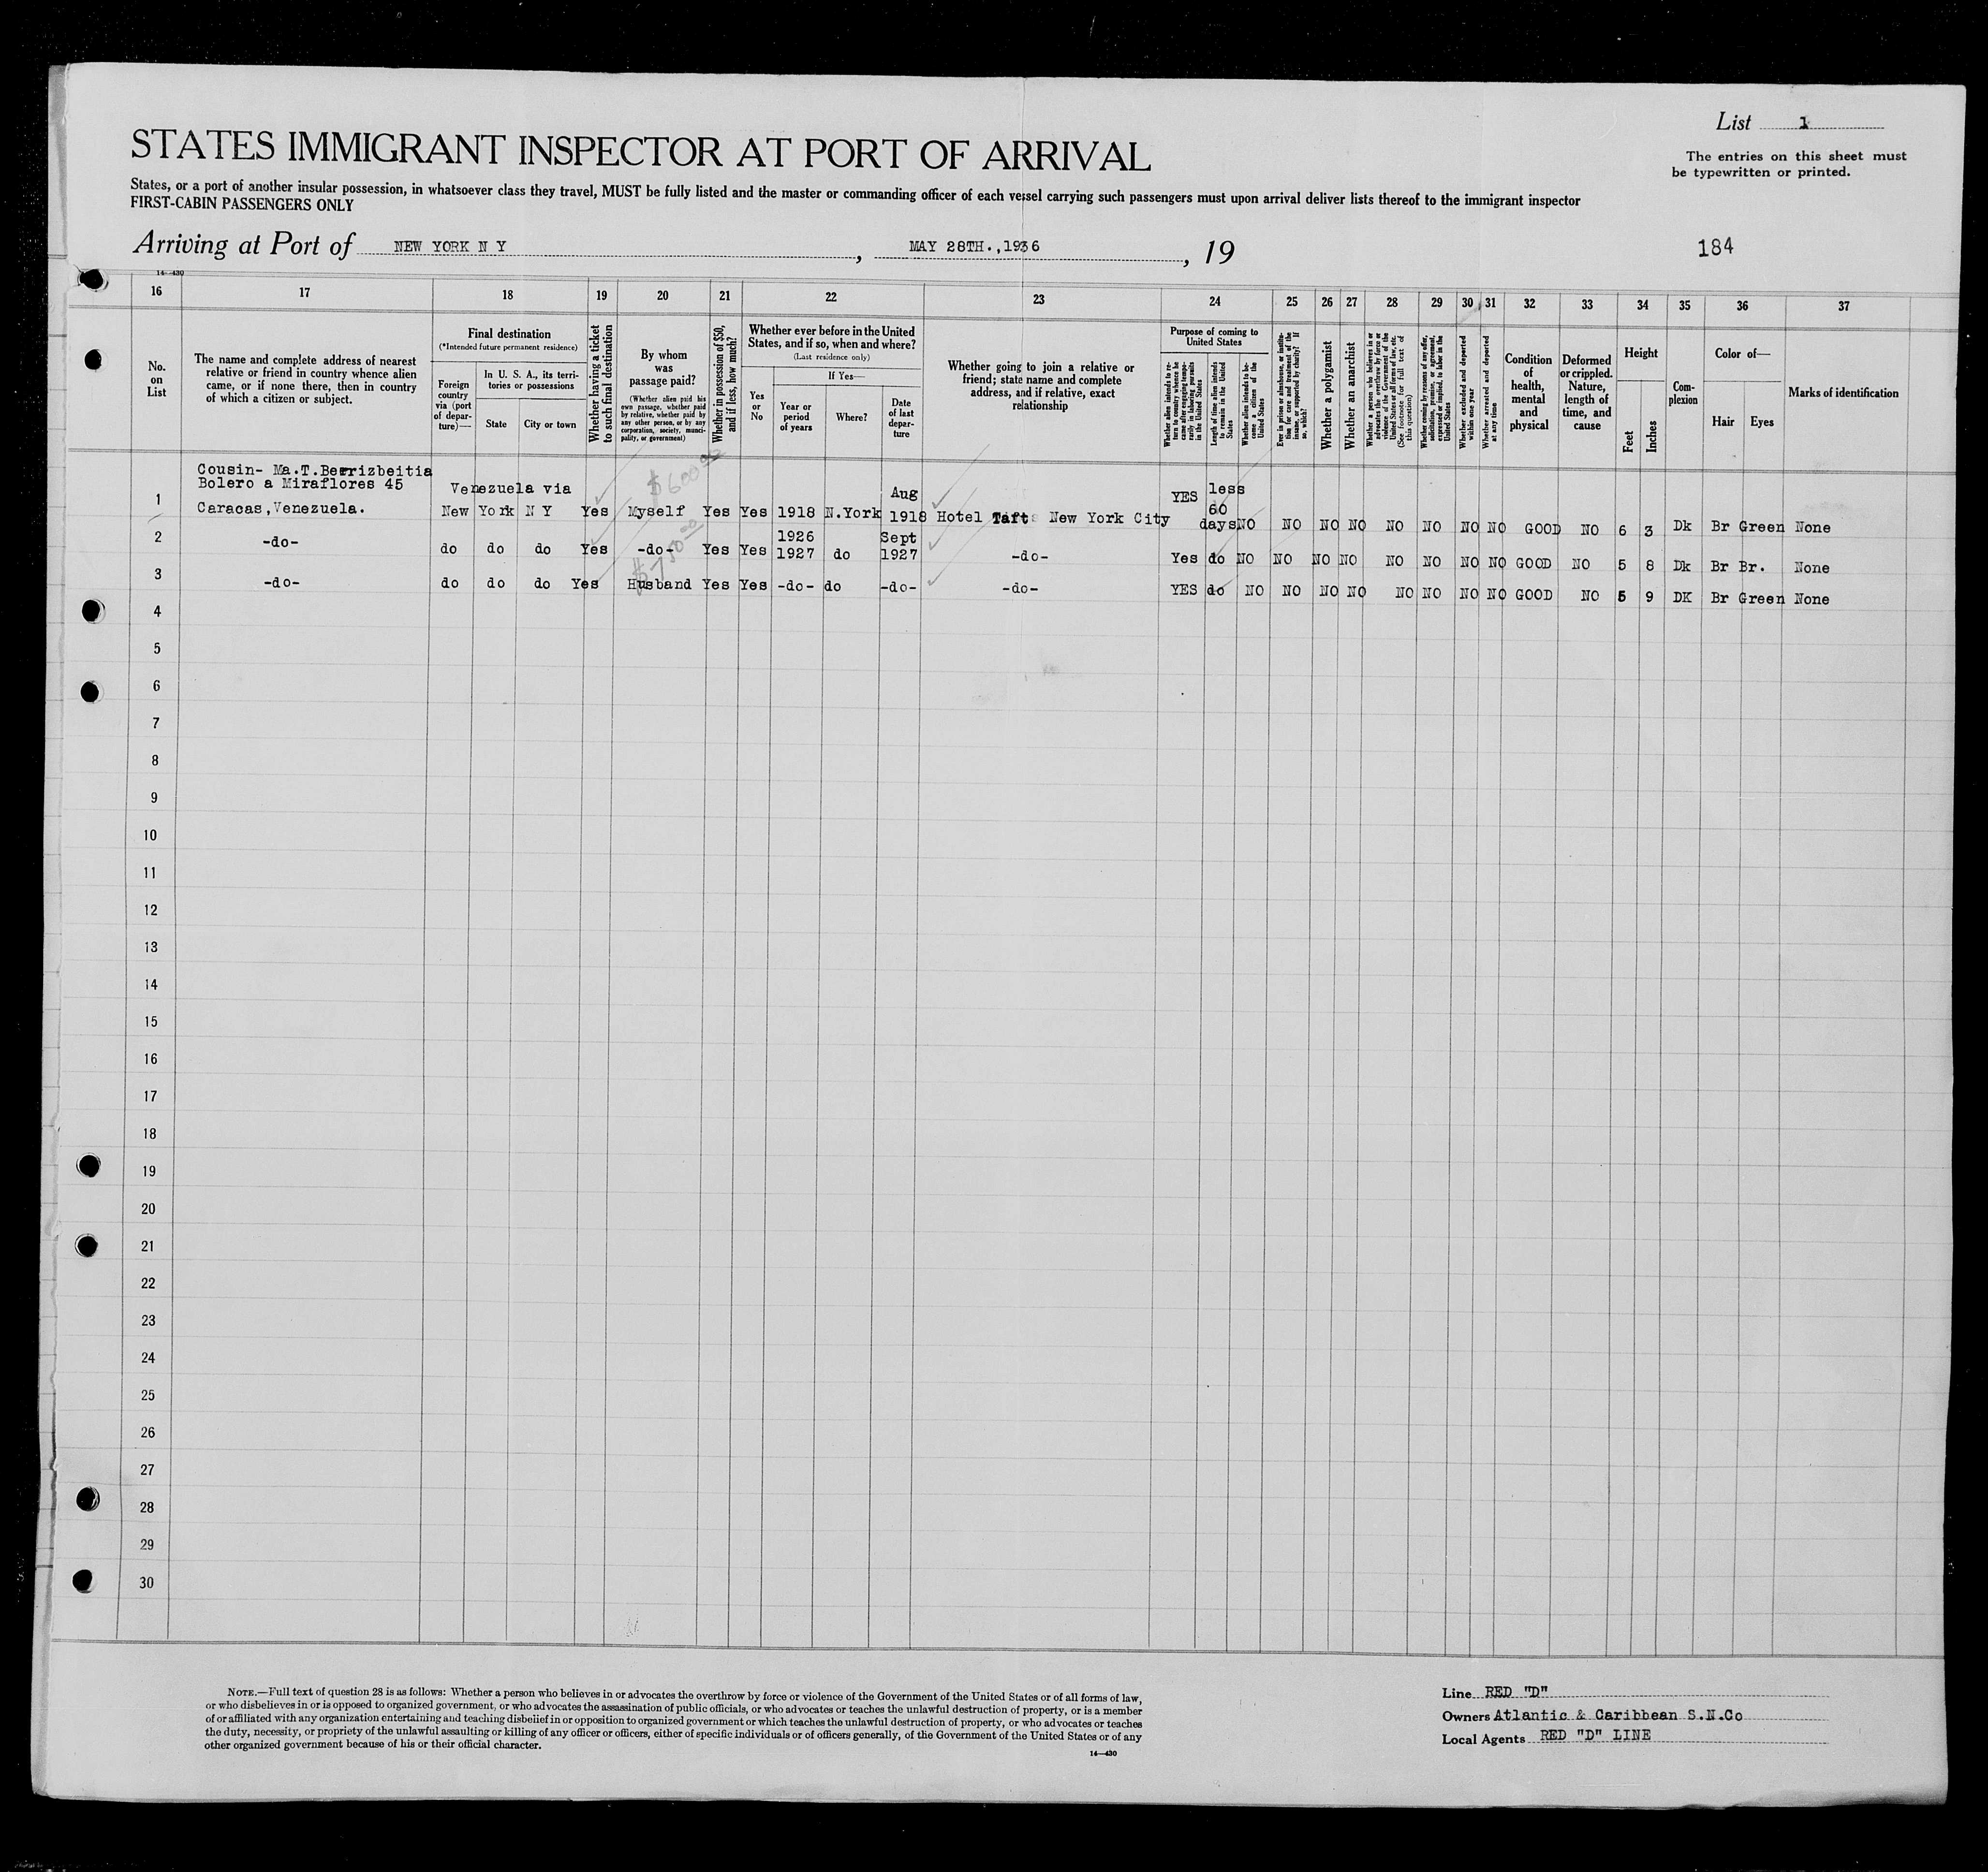 List 1
STATES IMMIGRANT INSPECTOR AT PORT OF ARRIVAL
The entries on this sheet must
be typewritten or printed.
States, or a port of another insular possession, in whatsoever class they travel, MUST be fully listed and the master or commanding officer of each vessel carrying such passengers must upon arrival deliver lists thereof to the immigrant inspector
FIRST-CABIN PASSENGERS ONLY
Arriving at Port of NEW YORK N Y, MAY 28TH.,1936, 19
184
14-430
16 17 18 19 20 21 22 23 24 25 26 27 28 29 30 31 32 33 34 35 36 37
No.
on
List
The name and complete address of nearest
relative or friend in country whence alien
came, or if none there, then in country
of which a citizen or subject.
Final destination
(*Intended future permanent residence)
Foreign
country
via (port
of depar-
ture)—
In U. S. A., its terri-
tories or possessions
State
City or town
Whether having a ticket
to such final destination
By whom
was
passage paid?
(Whether alien paid his
own passage, whether paid
by relative, whether paid by
any other person, or by any
corporation, society, munci-
pality, or government)
Whether in possession of $50,
and if less, how much?
Whether ever before in the United
States, and if so, when and where?
(Last residence only)
Yes
or
No
If Yes—
Year or
period
of years
Where?
Date
of last
depar-
ture
Whether going to join a relative or
friend; state name and complete
address, and if relative, exact
relationship
Purpose of coming to
United States
Whether alien intends to re-
turn to country whence he
came after engaging tempo-
rarily in laboring pursuits
in the United States
Length of time alien intends
to remain in the United
States
Whether alien intends to be-
come a citizen of the
United States
Ever in prison or almshouse, or institu-
tion for care and treatment of the
insane, or supported by charity? If
so, which?
Whether a polygamist
Whether an anarchist
Whether a person who believes in or
advocates the overthrow by force or
violence of the Government of the
United States or all forms of law, etc.
(See footnote for full text of
this question)
Whether coming by reasons of any offer,
solicitation, promise, or agreement,
expressed or implied, to labor in the
United States
Whether excluded and deported
within one year
Whether arrested and deported
at any time
Condition
of
health,
mental
and
physical
Deformed
or crippled.
Nature,
length of
time, and
cause
Height
Feet
Inches
Com-
plexion
Color of—
Hair Eyes
Marks of identification
$600.00
Cousin- Ma.T.Berrizbeitia
Bolero a Miraflores 45
Venezuela via Aug YES less
60
1 Caracas,Venezuela. New York N Y Yes Myself Yes Yes 1918 N.York 1918 Hotel Taft New York City days NO NO NO NO NO NO NO NO GOOD NO 6 3 Dk Br Green None
1926 Sept
2 -do- do do do Yes -do- Yes Yes 1927 do 1927 -do- Yes do NO NO NO NO NO NO NO NO GOOD NO 5 8 Dk Br Br. None
3 -do- do do do Yes Husband Yes Yes -do- do -do- -do- YES do NO NO NO NO NO NO NO NO GOOD NO 5 9 DK Br Green None
4
5
6
7
8
9
10
11
12
13
14
15
16
17
18
19
20
21
22
23
24
25
26
27
28
29
30
NOTE.—Full text of question 28 is as follows: Whether a person who believes in or advocates the overthrow by force or violence of the Government of the United States or of all forms of law,
or who disbelieves in or is opposed to organized government, or who advocates the assassination of public officials, or who advocates or teaches the unlawful destruction of property, or is a member
of or affiliated with any organization entertaining and teaching disbelief in or opposition to organized government or which teaches the unlawful destruction of property, or who advocates or teaches
the duty, necessity, or propriety of the unlawful assaulting or killing of any officer or officers, either of specific individuals or of officers generally, of the Government of the United States or of any
other organized government because of his or their official character.
14—430
Line RED "D"
Owners Atlantic & Caribbean S.N.Co
Local Agents RED "D" LINE